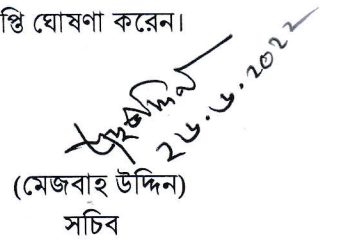 প্তি ঘোষণা করেন।
২৬.৬.২০২২
(মেজবাহ উদ্দিন)
সচিব